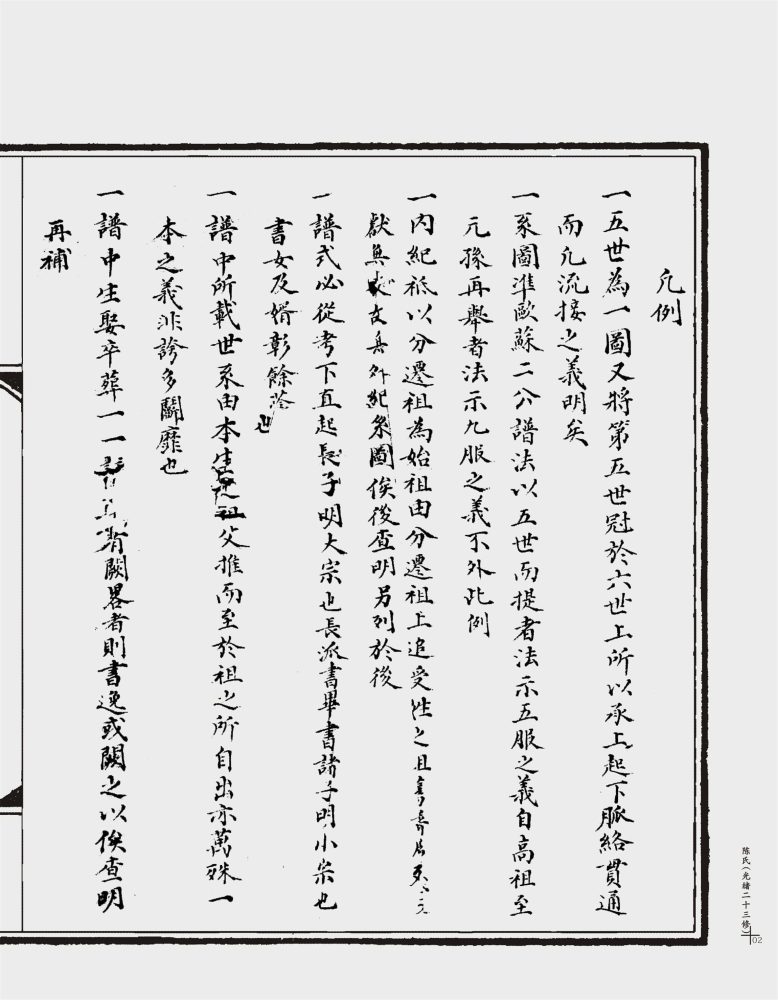 凡例
一五世為一圖又將第五世冠於六世上所以承上起下脈絡貫通
而凢流接之義明矣
一系圖準歐蘇二公譜法以五世而提者法示五服之義自高祖至
元孫再舉者法示九服之義不外此例
一內紀祗以分遷祖為始祖由分遷祖上追受姓之
獻無 故無外紀系圖俟後查明另列於後
一譜式必從考下直起長子明大宗也長派書畢書諸子明小宗也
書女及婿彰餘蔭也
一譜中所載世系由本生 祖父推而至於祖之所自出亦萬殊一
本之義非誇多鬭靡也
一譜中生娶卒葬一一 有闕畧者則書逸或闕之以俟查明
再補
陈氏(光緒二十三修)
02